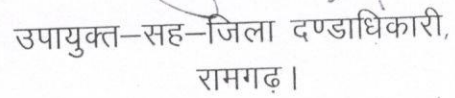 उपायुक्त–सह–जिला दण्डाधिकारी,
रामगढ़।